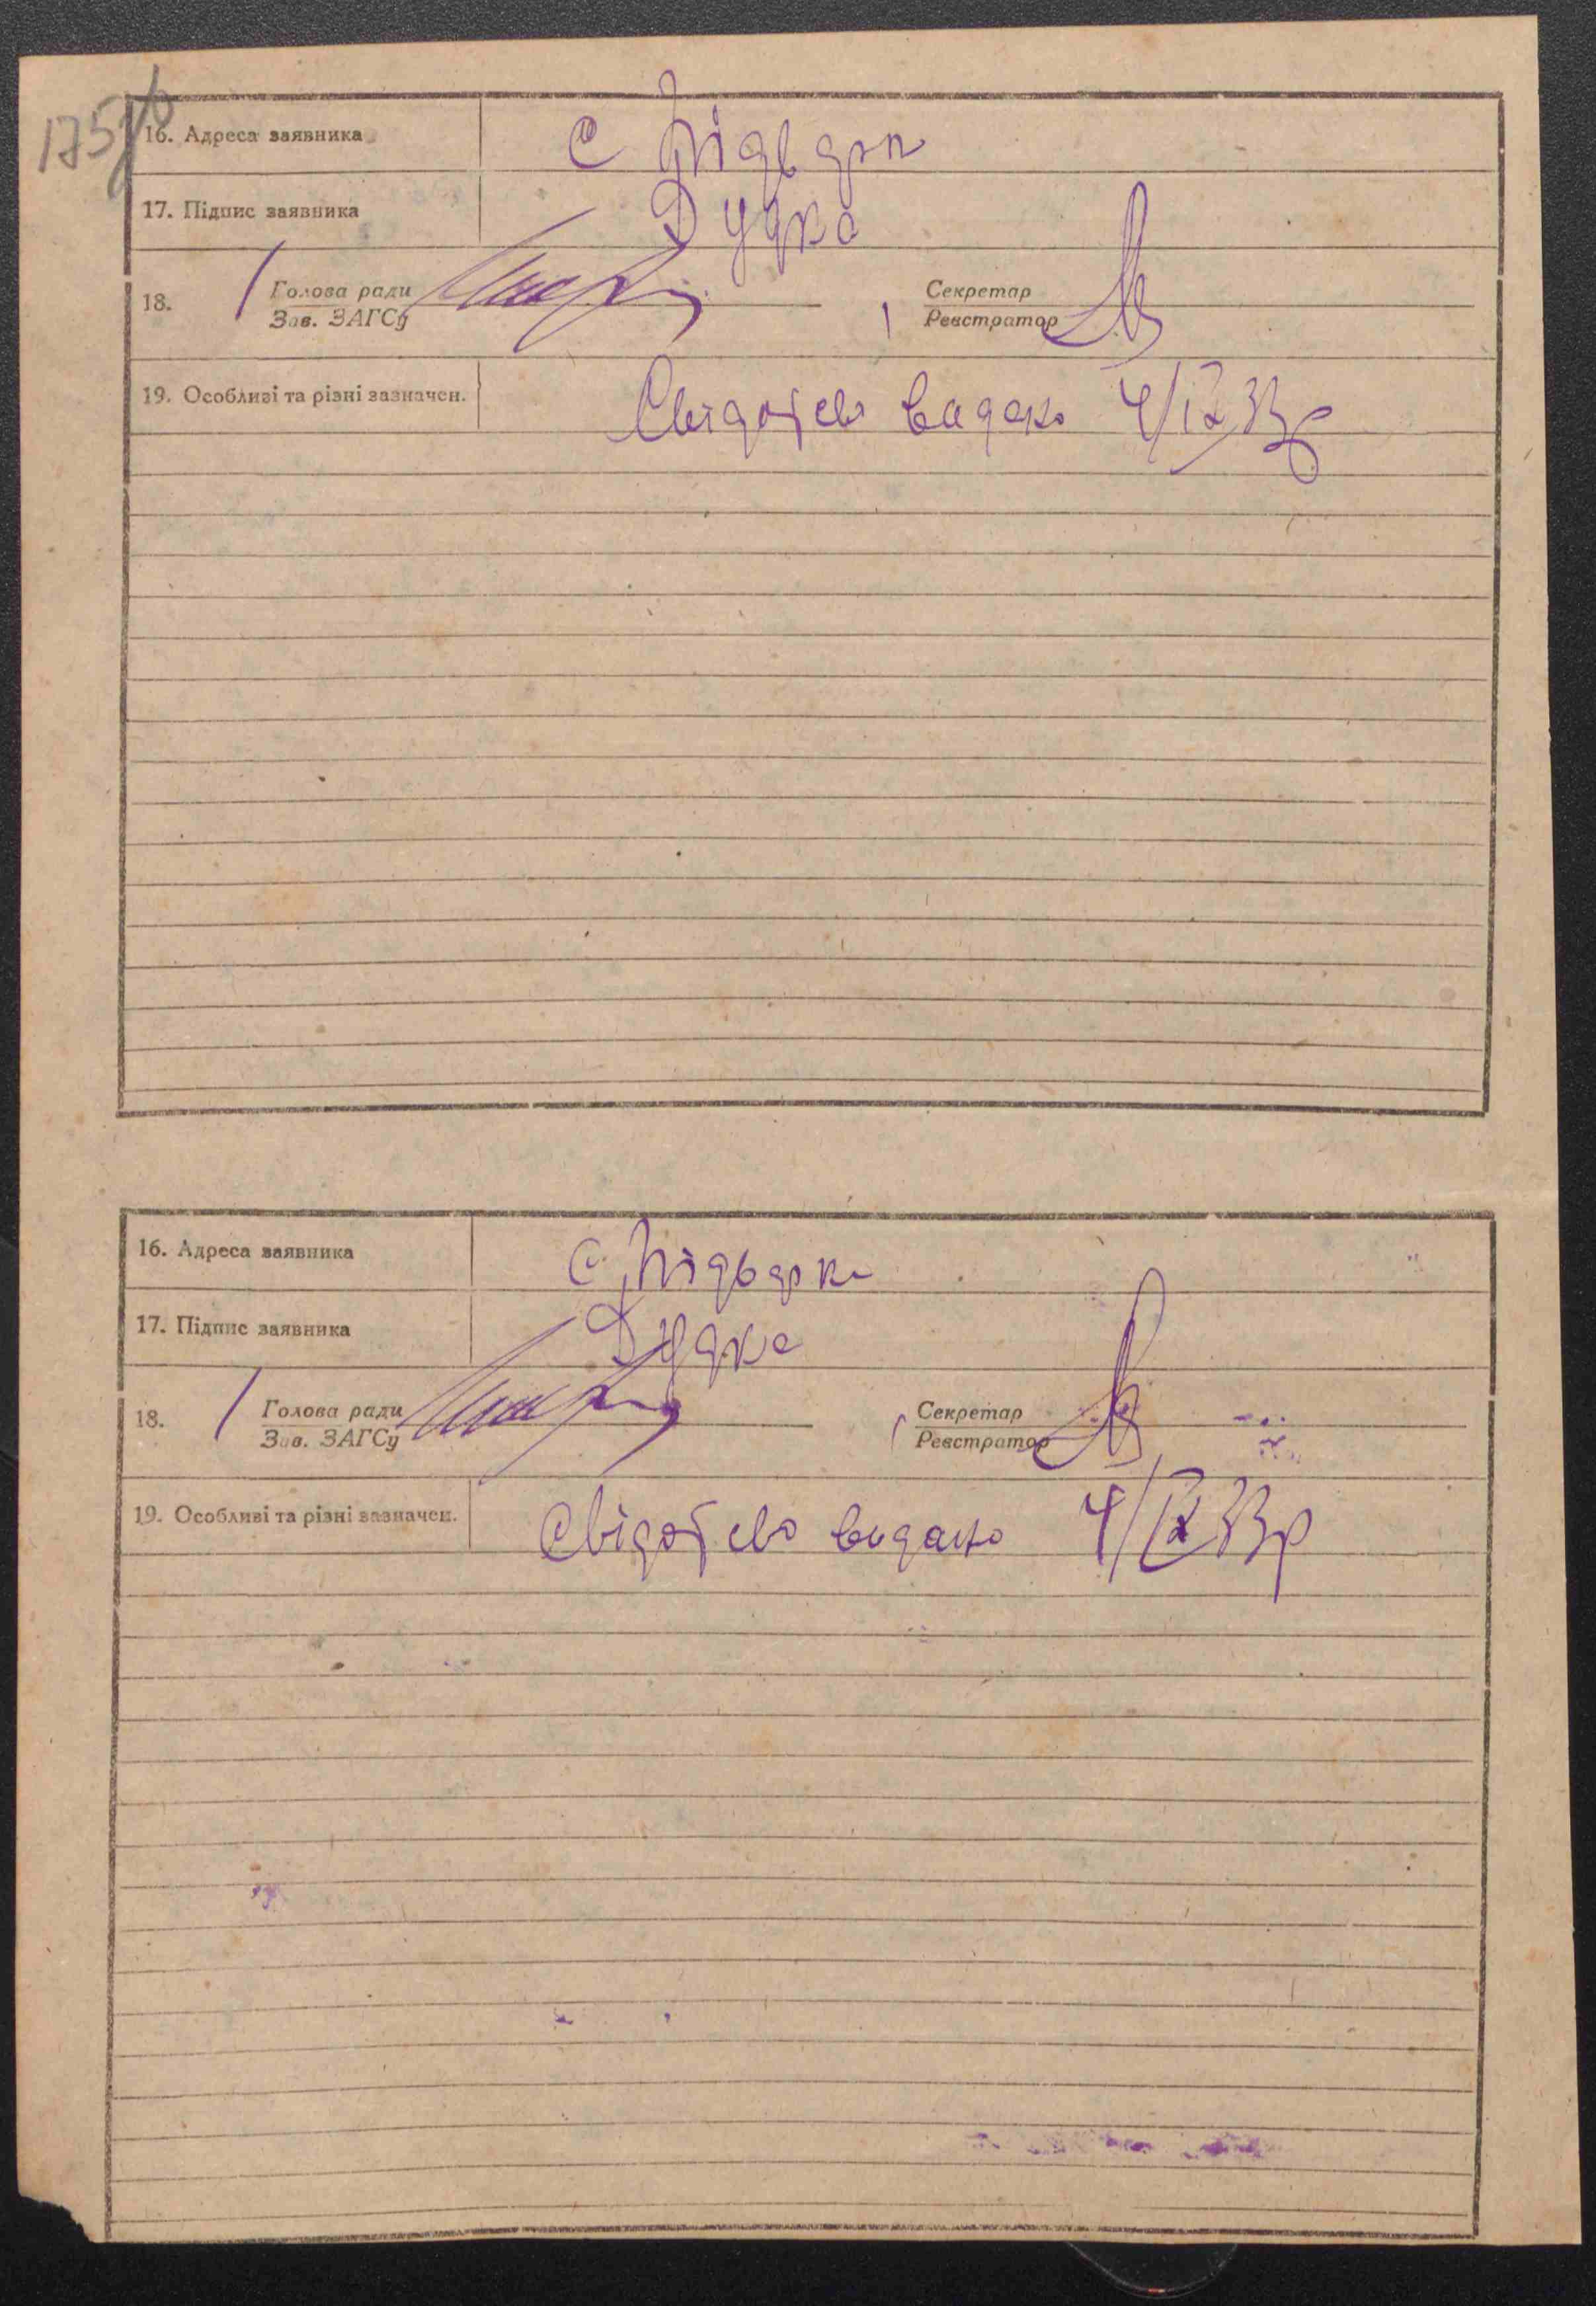 175
16. Адреса заявника с Підварк
17. Підпис заявника Дудка
18. Голова ради Секретар
Зав. ЗАГСу Реєстратор
19. Особливі та різні зазначен. Свідоцтво видано 4/IX 33р
16. Адреса заявника с. Підварки
17. Підпис заявника Дудка
18. Голова ради Секретар
Зав. ЗАГСу Реєстратор
19. Особливі та різні зазначен. Свідоцтво видано 4/IX 33р